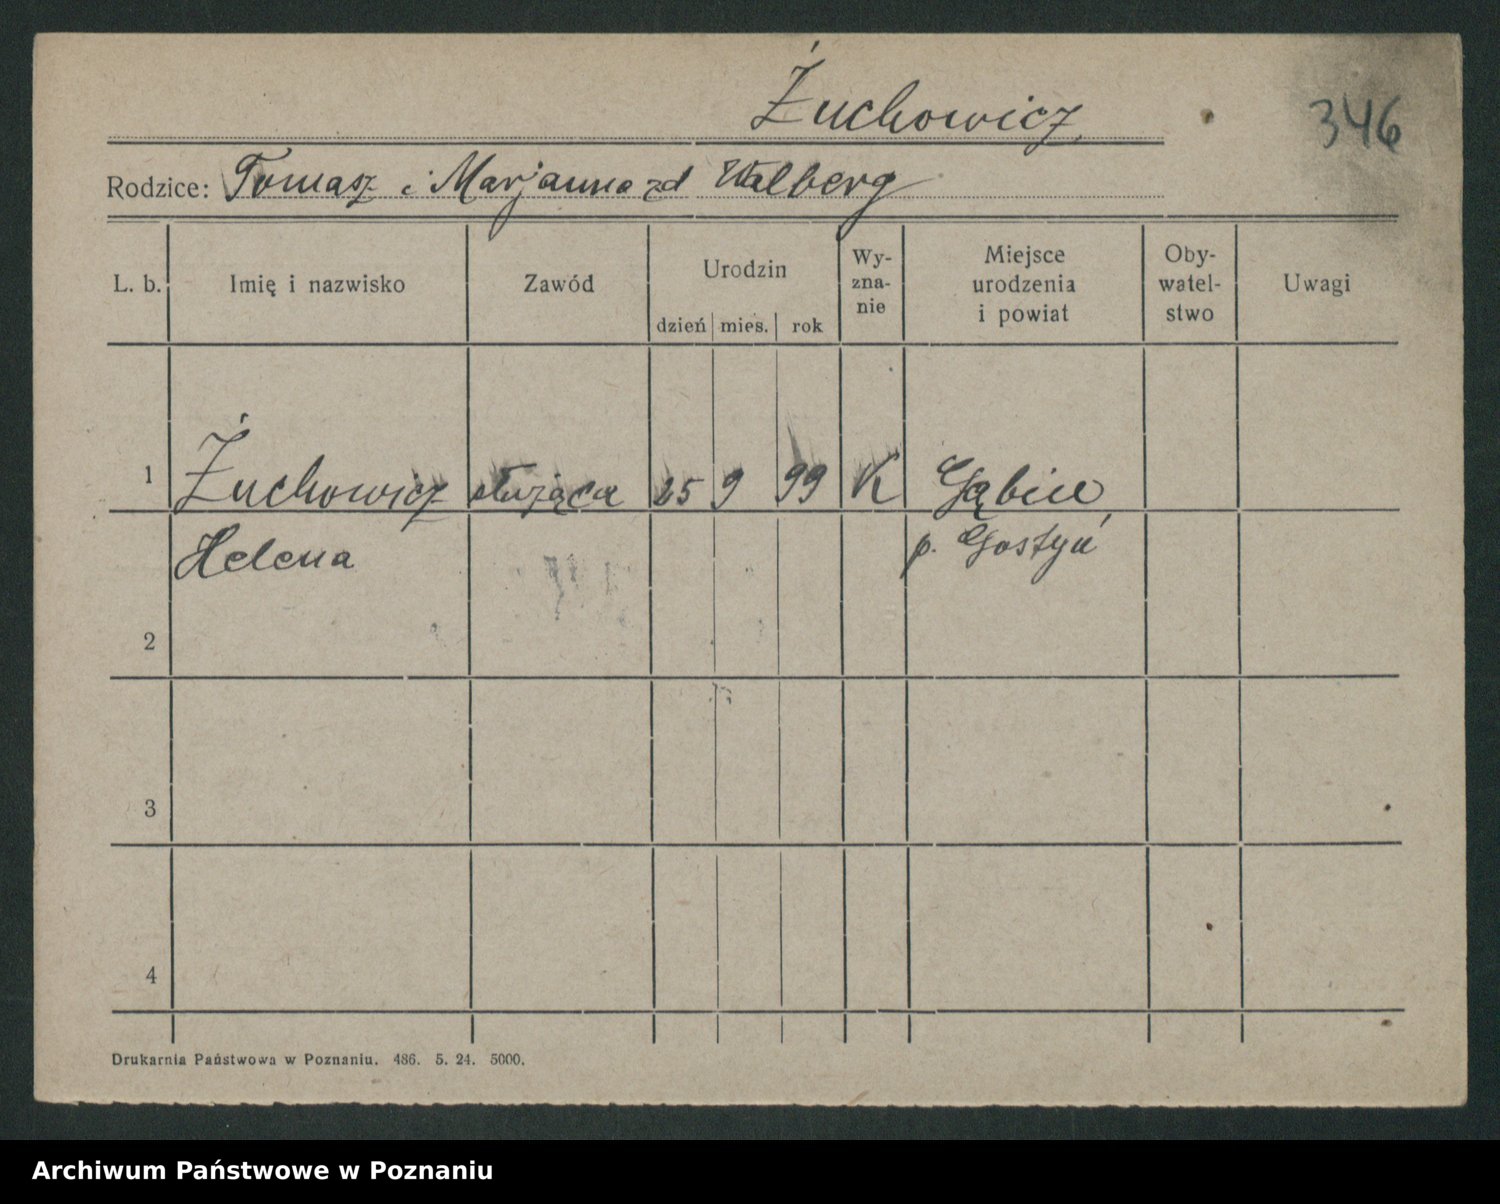 Żuchowicz
346
Rodzice: Tomasz i Marjanna zd Walberg
L. b. Imię i nazwisko Zawód Urodzin dzień mies. rok Wy-zna-nie Miejsce urodzenia i powiat Oby-watel-stwo Uwagi
1 Żuchowicz służąca 25 9 99 K Gąbin
Helena p. Gostyń
2
3
4
Drukarnia Państwowa w Poznaniu. 486. 5. 24. 5000.
Archiwum Państwowe w Poznaniu